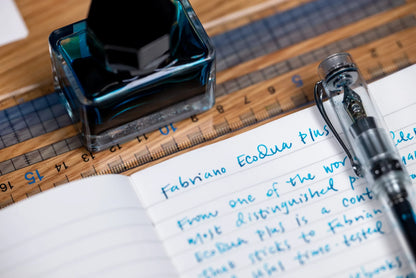 Fabriano EcoQua Plus
From one of the wor
most distinguished p
EcoQua Plus is a cont
that sticks to Fabriano
plus time-tested